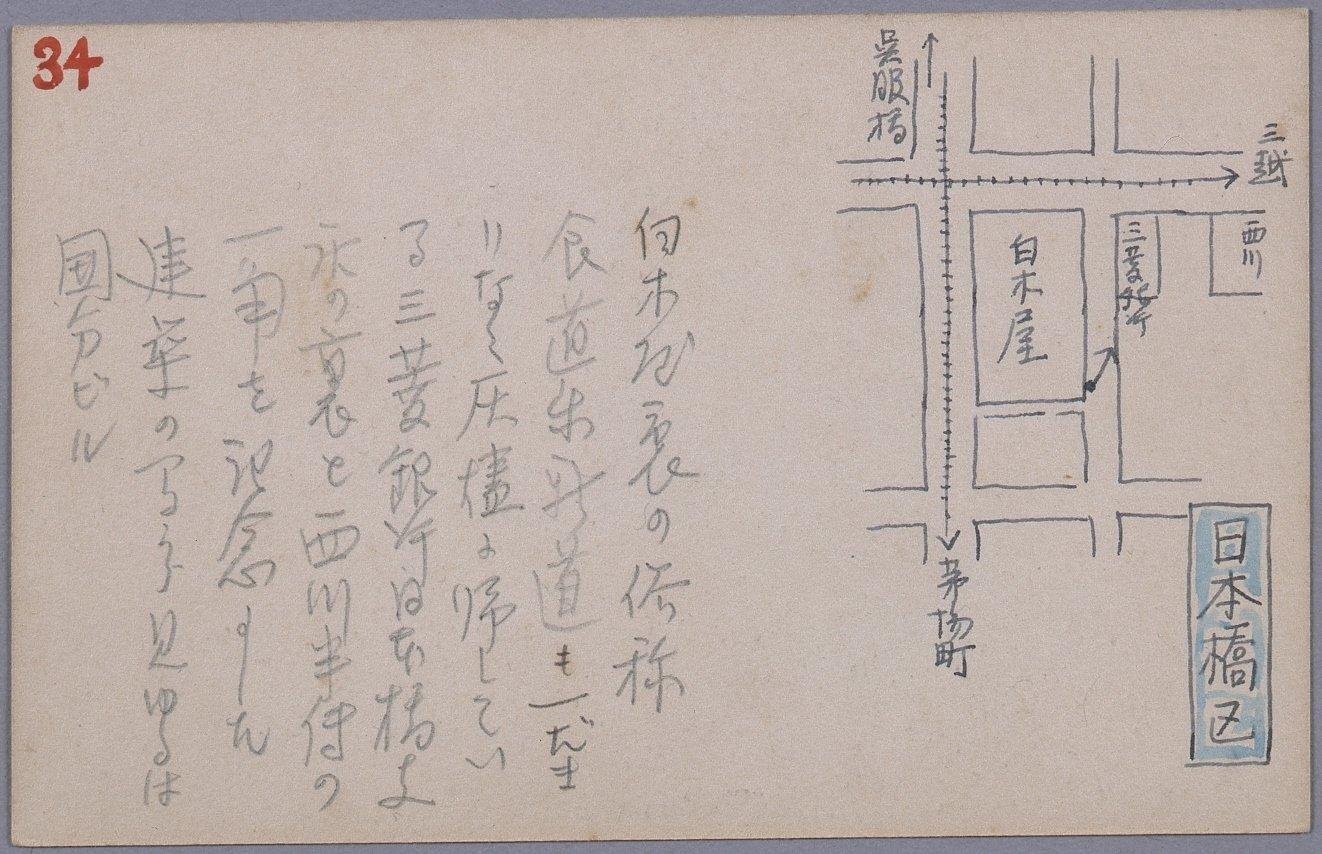 34
呉服橋
三越
西川
三菱銀行
白木屋
茅場町
日本橋区
白木屋裏の俗称
食道楽新道も一だま
りなく灰燼に帰してい
る三菱銀行日本橋支
店の裏と西川半傳の
一角を記念しました
建築の向ふ見ゆるは
国分ビル